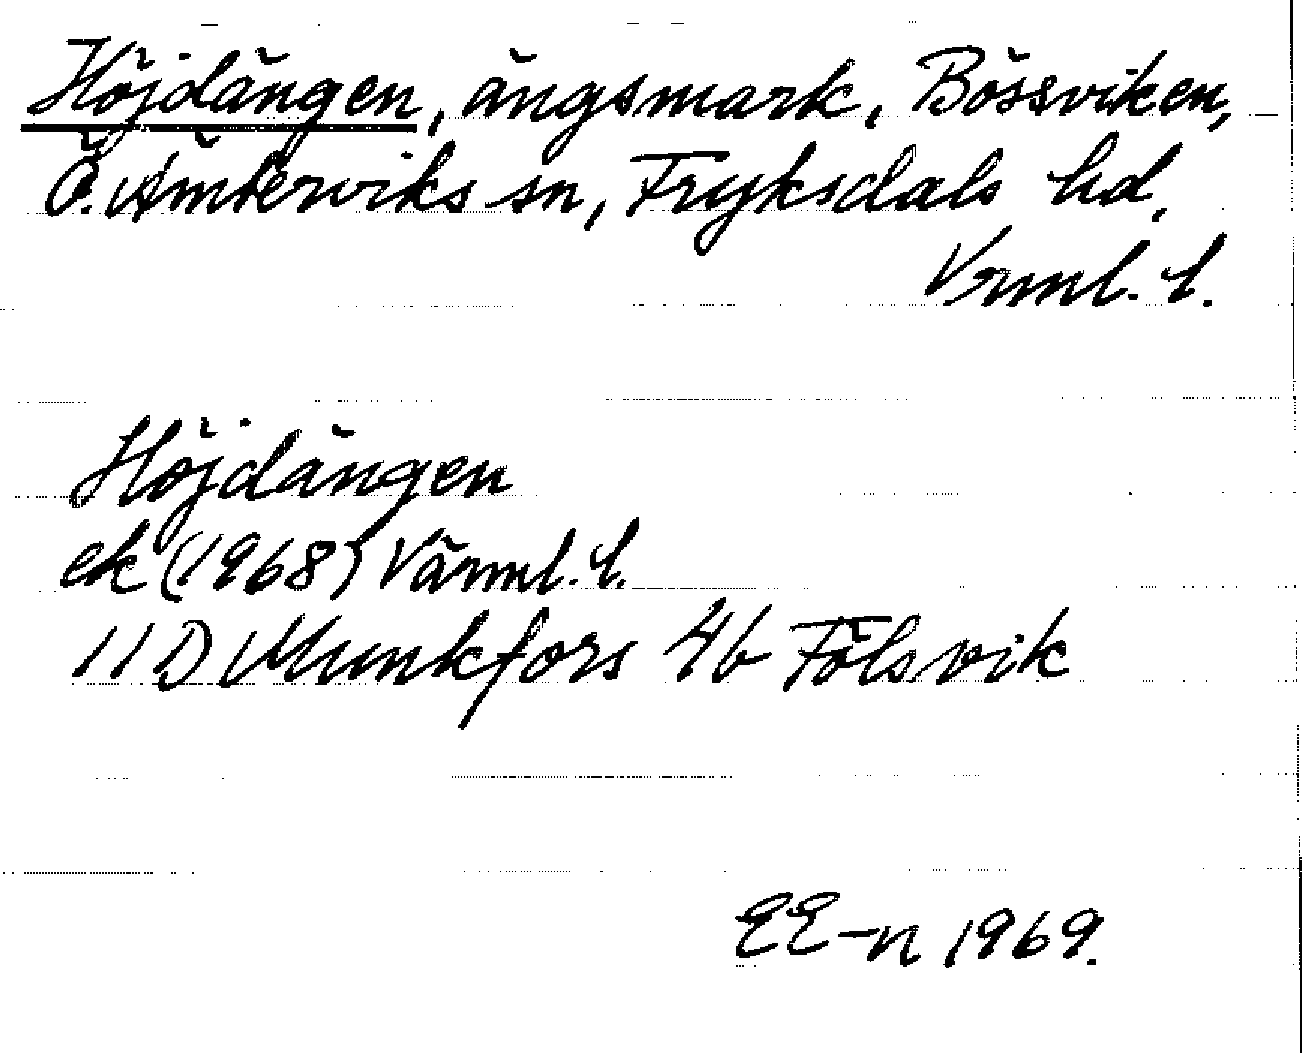 Höjdängen, ängsmark, Bössviken,
Ö. Ämterviks sn, Fryksdals hd,
Vrml. l.
Höjdängen
ek (1968) Värml. l.
11 D Munkfors 4b Fölsvik
EE-n 1969.